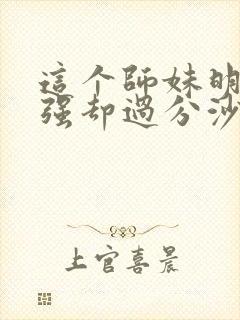 這个師妹明
强却過分沙
上官喜晨